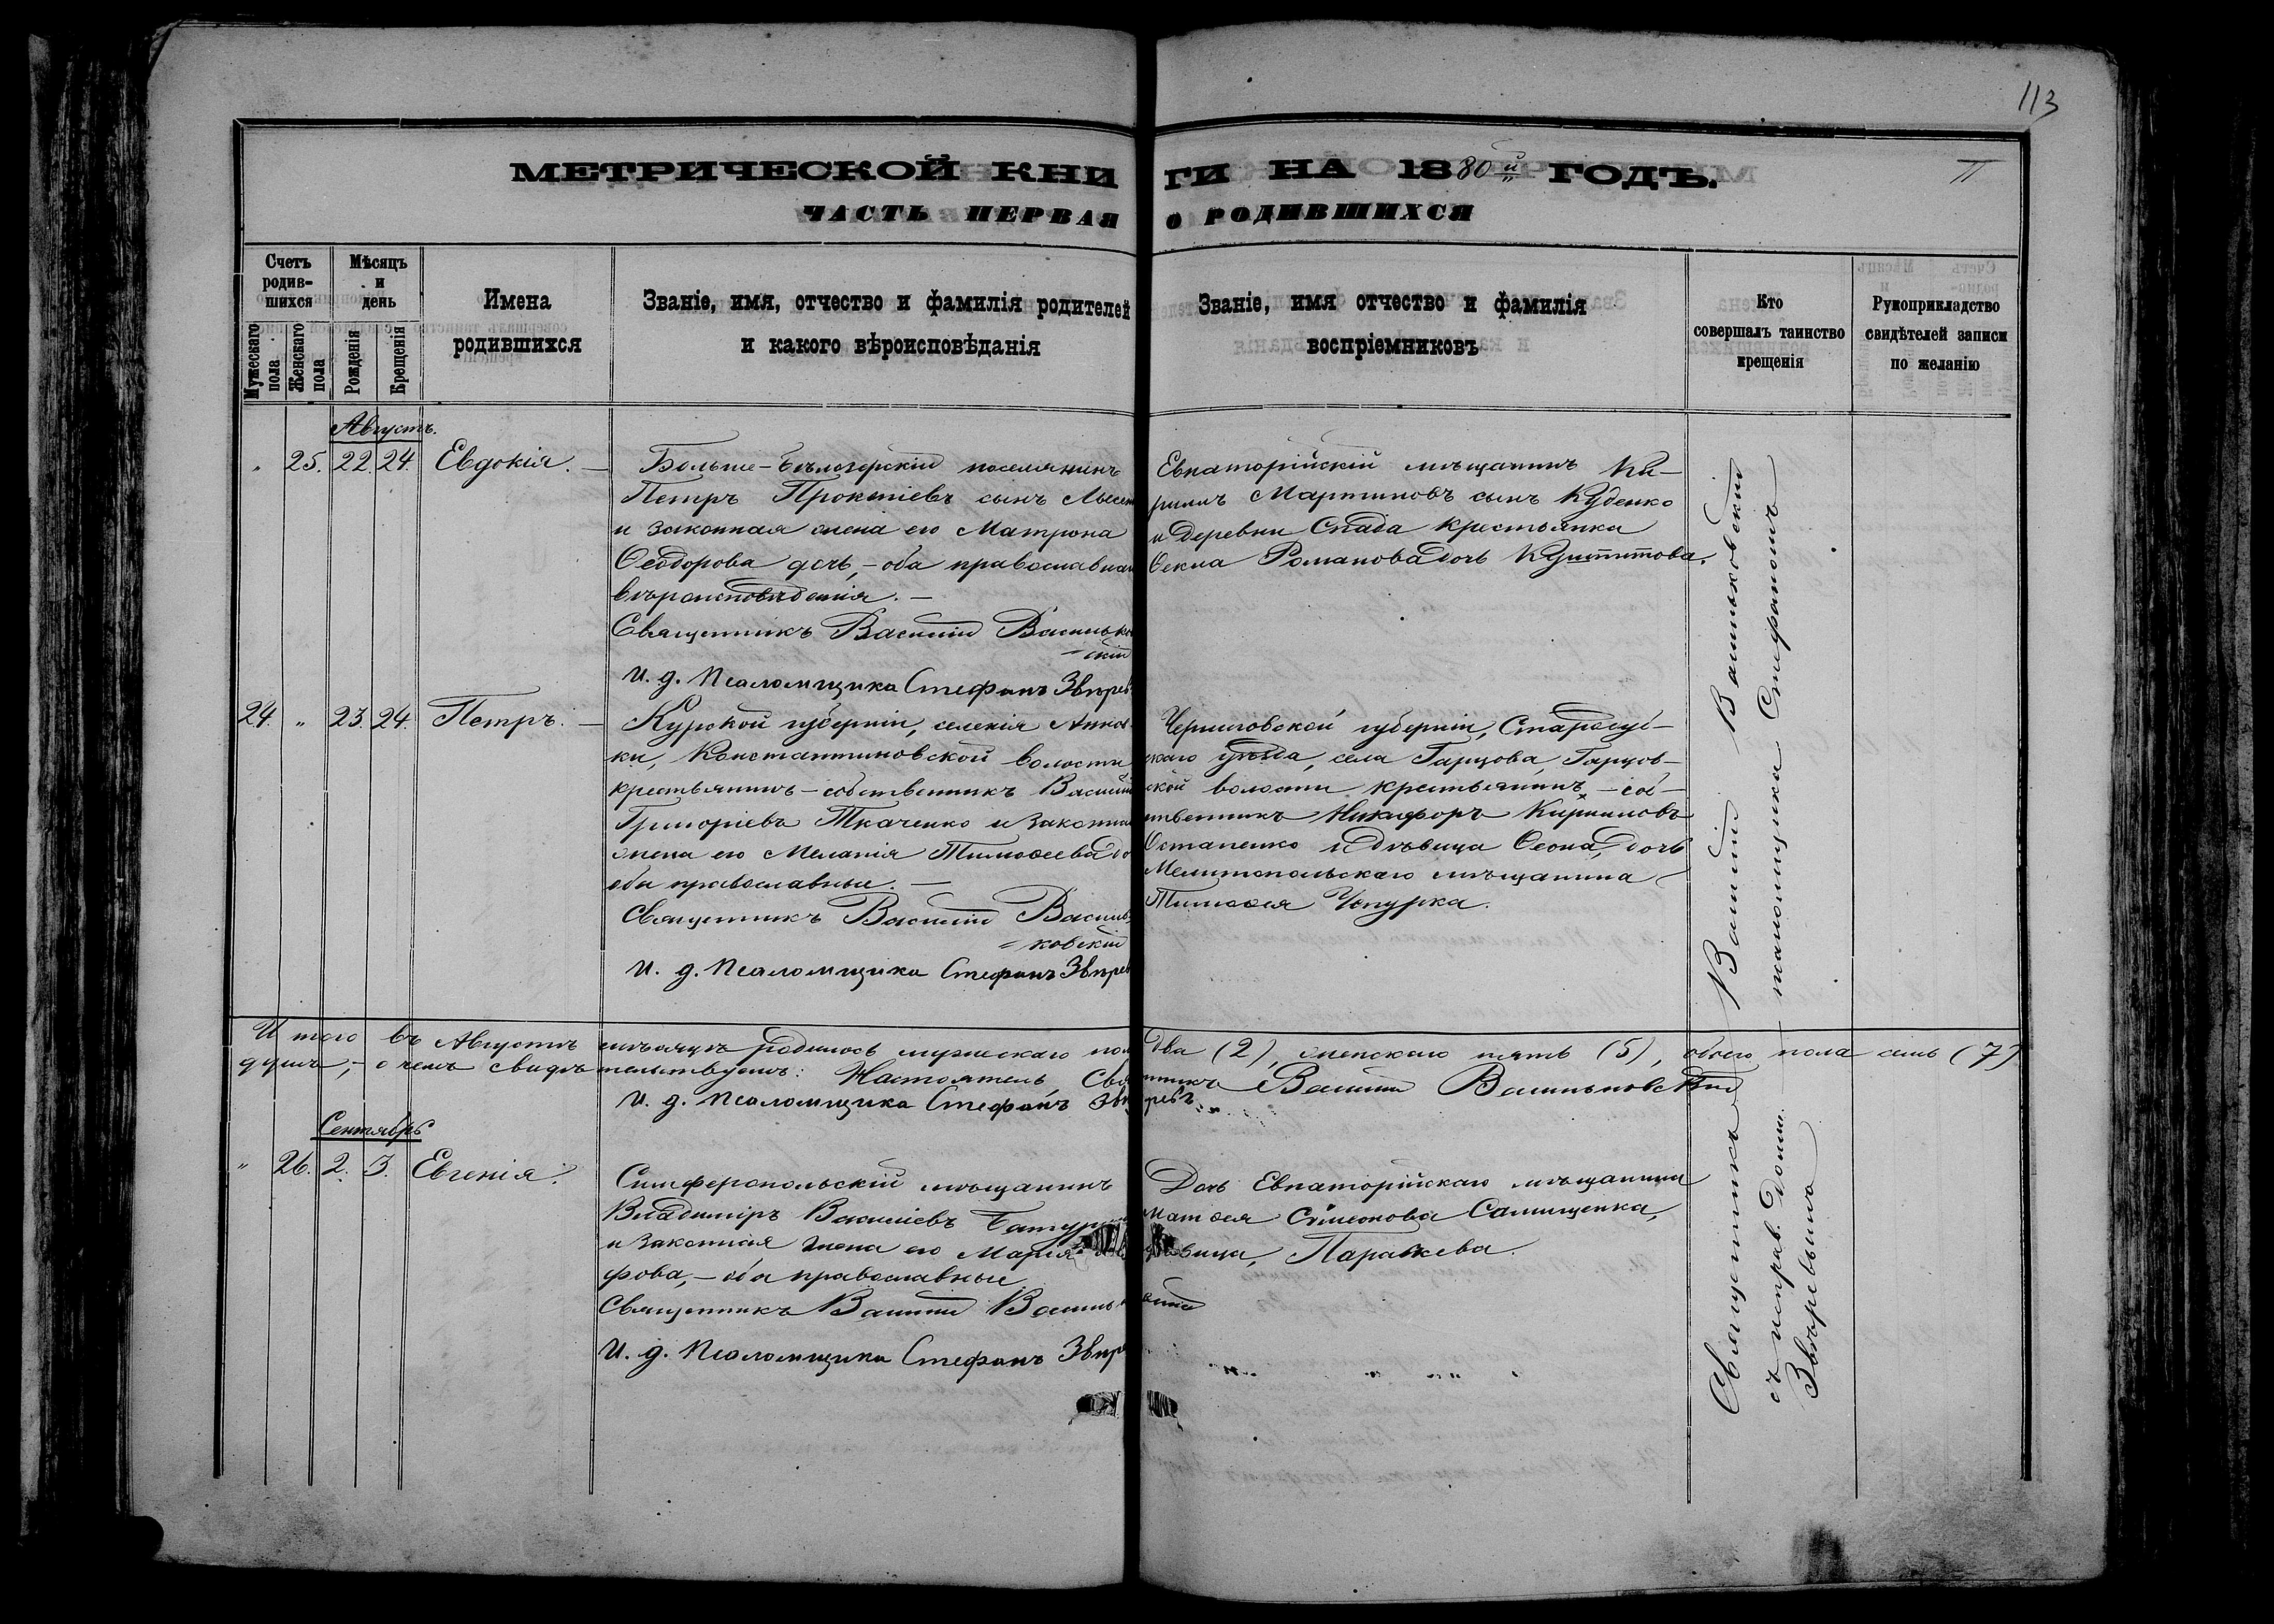 113
МЕТРИЧЕСКОЙ КНИГИ НА 1880й ГОДЪ.
ЧАСТЬ ПЕРВАЯ О РОДИВШИХСЯ
Счетъ родившихся
Мужескаго пола
Женскаго пола
Мѣсяцъ и день
Рожденія
Крещенія
Имена родившихся
Званіе, имя, отчество и фамилія родителей
и какого вѣроисповѣданія
Званіе, имя отчество и фамилія
воспріемниковъ
Кто
совершалъ таинство
крещенія
Рукоприкладство
свидѣтелей записи
по желанію
Августъ.
" 25. 22. 24. Евдокія. —
Больше-Бѣлозерскій поселянинъ
Петръ Прокпіевъ сынъ
и законная жена его Матрона
Ѳеодорова дочь, – оба православнаго
вѣроисповѣданія. —
Священникъ Василій Васильков
=скій
И. д. Псаломщика Стефанъ Звѣрев
Евпаторійскій мѣщанинъ Ки-
рилъ Мартиновъ сынъ Куденко
и деревни Спада крестьянка
Ѳекла Романова дочь
24. " 23. 24. Петръ. —
Курской губерніи, селенія Аннов
ки, Константиновской волости
крестьянинъ – собственникъ Василій
Григоріевъ Ткаченко и законная
жена его Меланія Тимоѳеева до
оба православные. —
Священникъ Василій Василь=
=ковскій
И. д. Псаломщика Стефанъ Звѣрев
Черниговской губерніи, Стародуб-
скаго уѣзда, села Гарцова, Гарцов-
ской волости крестьянинъ – соб-
ственникъ Никифоръ Кириловъ
Остапенко и дѣвица Ѳеона, дочь
Мелитопольскаго мѣщанина
Тимоѳея Чепурка.
И того въ Августѣ мѣсяцѣ родилось мужескаго пола два (2), женскаго пять (5), обоего пола семь (7)
душъ, – о чемъ свидѣтельствуемъ: Настоятель, Священникъ Василій Васильковскій
И. д. Псаломщика Стефанъ Звѣревъ
Сентябрь
" 26. 2. 3. Евгенія.
Симферопольскій мѣщанинъ
Владиміръ Василіевъ
и законная жена его Марія
фова, – оба православные.
Священникъ Василій Васильковскій
И. д. Псаломщика Стефанъ Звѣрев
Дочь Евпаторійскаго мѣщанина
Матѳея Симеонова Самищенка,
дѣвица, Параскева.
Священникъ Василій Васильковскій
съ исправ. долж. псаломщика Стефаномъ
Звѣревымъ